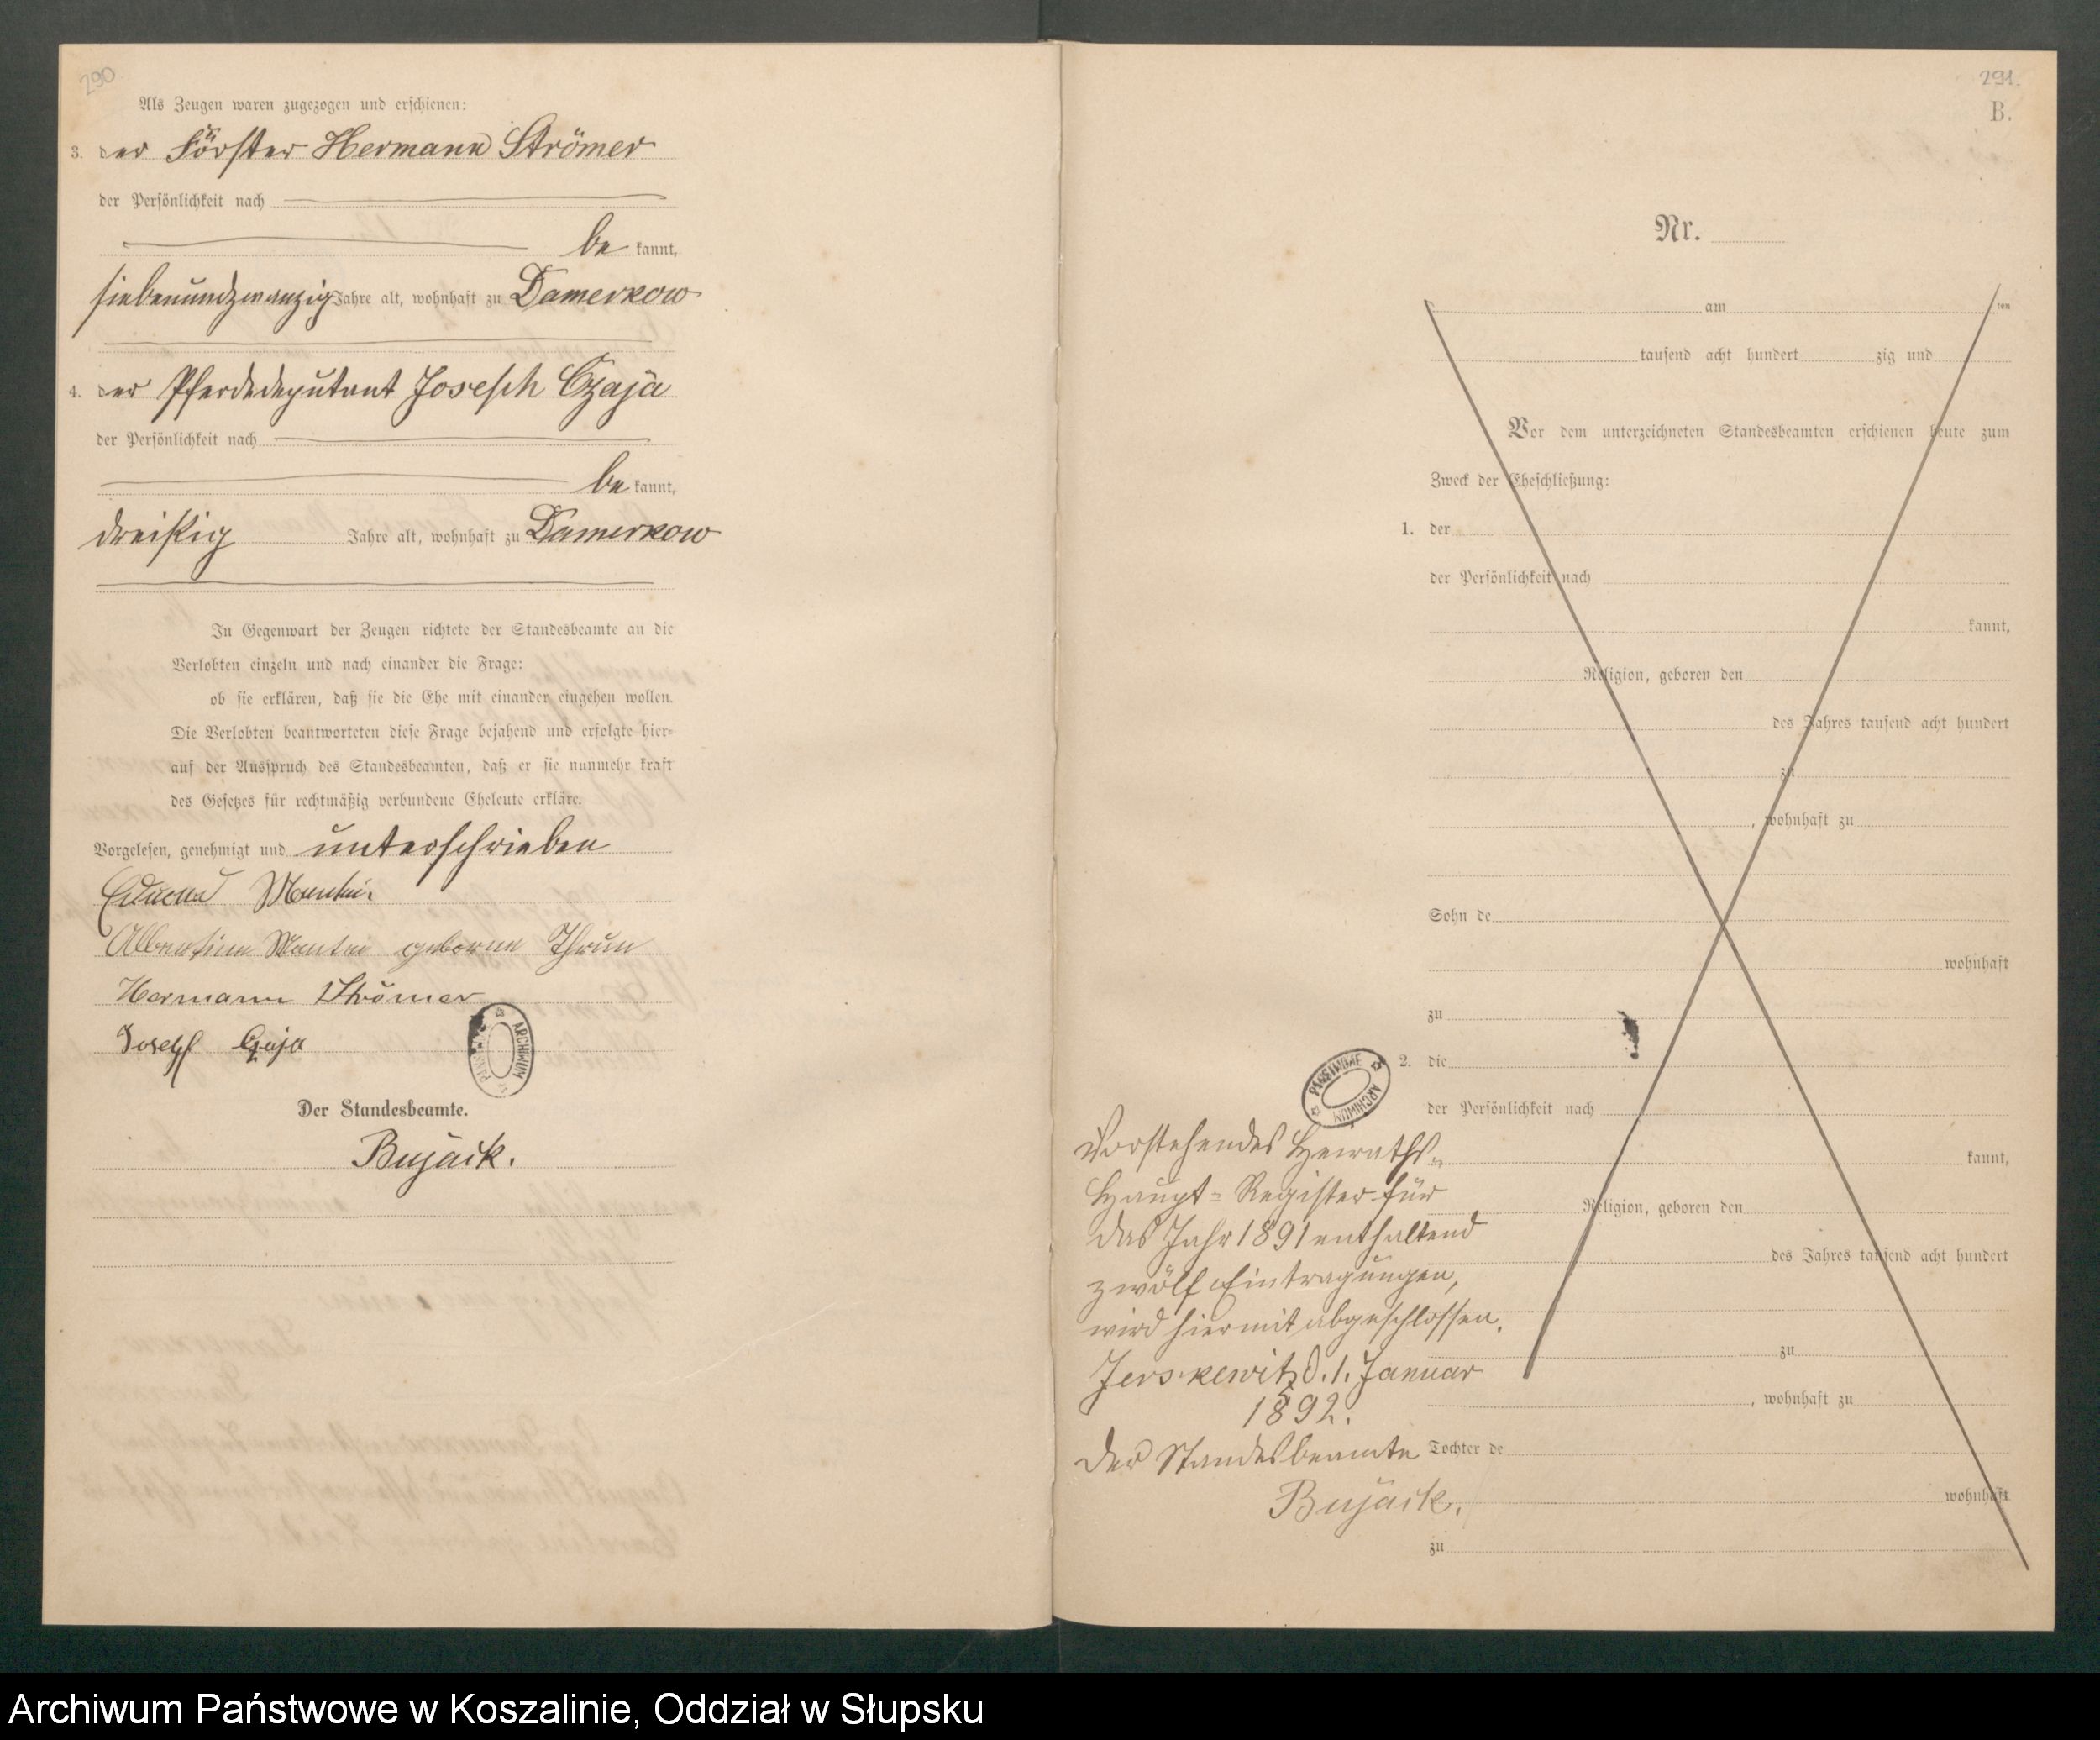 290
Als Zeugen waren zugezogen und erschienen:
3. der Förster Hermann Strömer
der Persönlichkeit nach
be kannt,
siebenundzwanzig Jahre alt, wohnhaft zu Damerkow
4. der Pferdedeputant Joseph Czaja
der Persönlichkeit nach
be kannt,
dreißig Jahre alt, wohnhaft zu Damerkow
In Gegenwart der Zeugen richtete der Standesbeamte an die
Verlobten einzeln und nach einander die Frage:
ob sie erklären, daß sie die Ehe mit einander eingehen wollen.
Die Verlobten beantworteten diese Frage bejahend und erfolgte hier-
auf der Ausspruch des Standesbeamten, daß er sie nunmehr kraft
des Gesetzes für rechtmäßig verbundene Eheleute erkläre.
Vorgelesen, genehmigt und unterschrieben
Eduard Mantei
Albertine Mantei geborne Thrun
Hermann Strömer
Joseph Czaja
ARCHIWUM
Der Standesbeamte.
Bujack.
291.
B.
Nr.
am ten
tausend acht hundert zig und
Vor dem unterzeichneten Standesbeamten erschienen heute zum
Zweck der Eheschließung:
1. der
der Persönlichkeit nach
kannt,
Religion, geboren den
des Jahres tausend acht hundert
zu
, wohnhaft zu
Sohn de
wohnhaft
zu
2. die
der Persönlichkeit nach
kannt,
Religion, geboren den
des Jahres tausend acht hundert
zu
, wohnhaft zu
Tochter de
wohnhaft
zu
ARCHIWUM
Vorstehendes Heiraths-
Haupt-Register für
das Jahr 1891 enthaltend
zwölf Eintragungen,
wird hiermit abgeschlossen.
Jerskewitz d. 1. Januar
1892.
Der Standesbeamte
Bujack.
Archiwum Państwowe w Koszalinie, Oddział w Słupsku